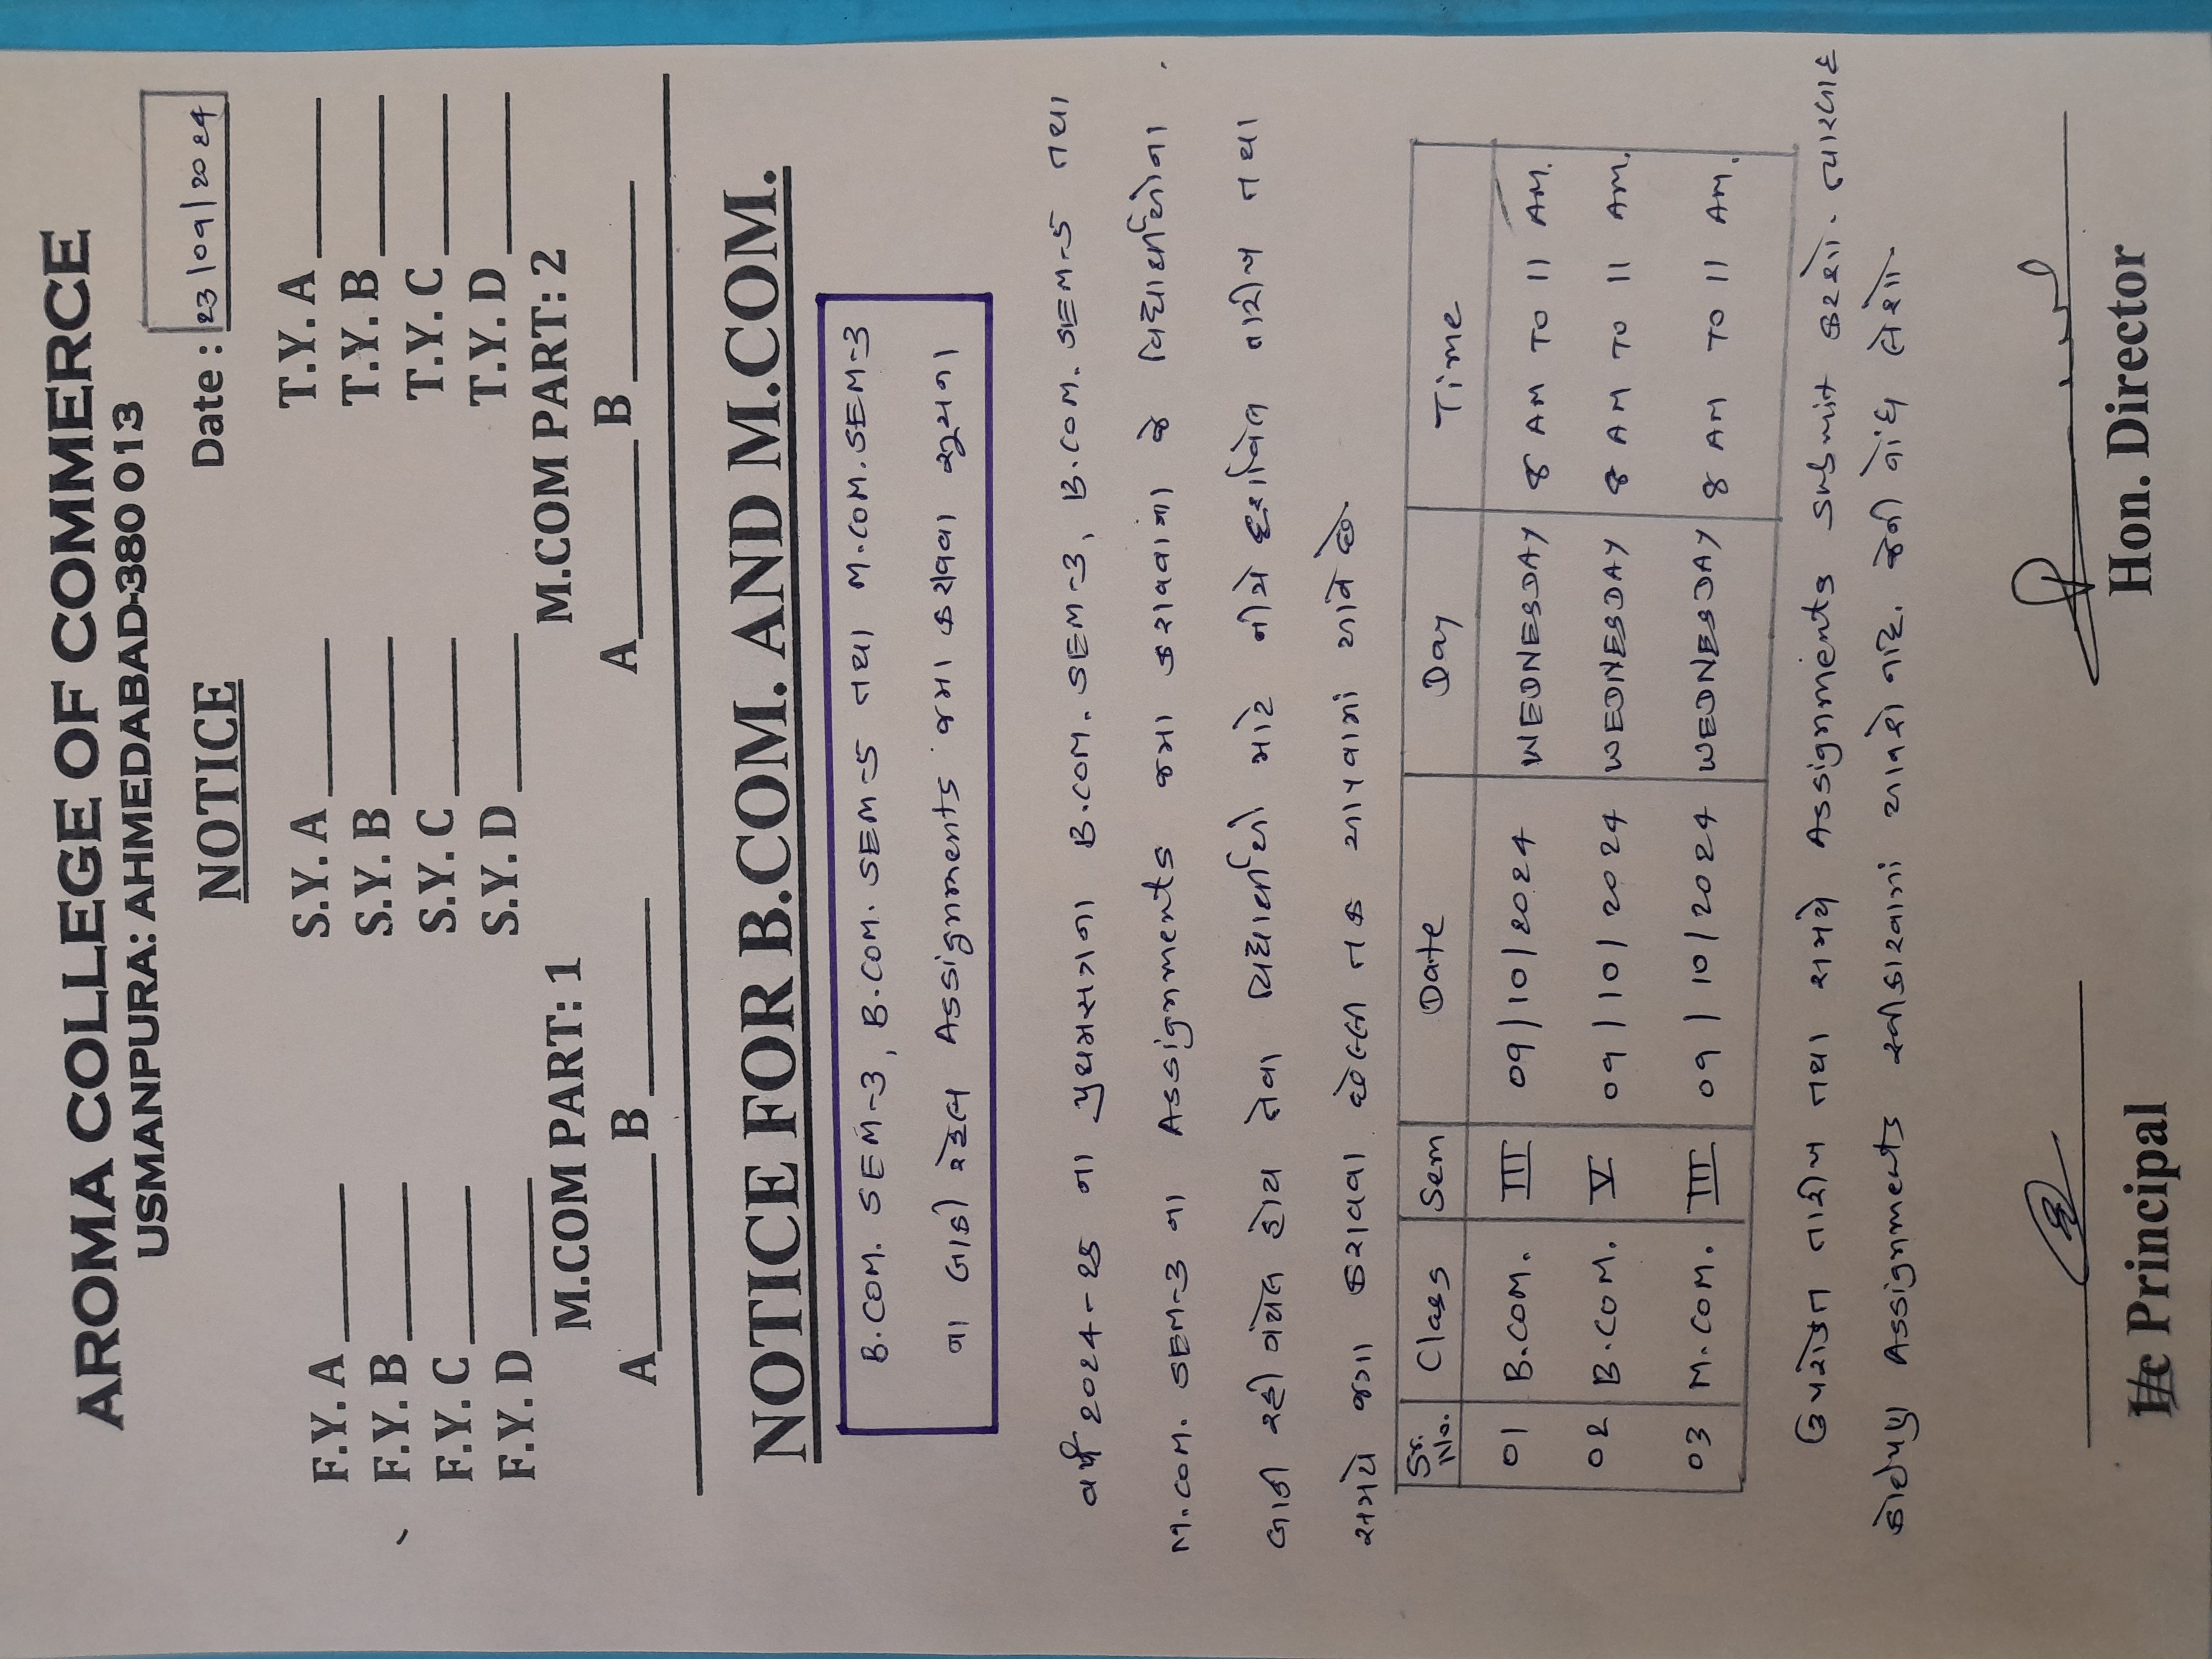 AROMA COLLEGE OF COMMERCE
USMANPURA: AHMEDABAD-380 013
NOTICE
Date : 23/09/2024
F.Y. A S.Y. A T.Y. A
F.Y. B S.Y. B T.Y. B
F.Y. C S.Y. C T.Y. C
F.Y. D S.Y. D T.Y. D
M.COM PART: 1 M.COM PART: 2
A B A B
NOTICE FOR B.COM. AND M.COM.
B.COM. SEM-3, B.COM. SEM-5 તથા M.COM. SEM-3
ના બાકી રહેલ Assignments જમા કરાવવા સૂચના
વર્ષ 2024-25 ના પ્રથમસત્રના B.COM. SEM-3, B.COM. SEM-5 તથા
M.COM. SEM-3 ના Assignments જમા કરાવવાના જે વિદ્યાર્થીઓના
બાકી રહી ગયેલ હોય તેવા વિદ્યાર્થીઓ માટે નીચે દર્શાવેલ તારીખ તથા
સમયે જમા કરાવવા છેલ્લી તક આપવામાં આવે છે.
Sr. No. Class Sem Date Day Time
01 B.COM. III 09/10/2024 WEDNESDAY 8 AM TO 11 AM.
02 B.COM. V 09/10/2024 WEDNESDAY 8 AM TO 11 AM.
03 M.COM. III 09/10/2024 WEDNESDAY 8 AM TO 11 AM.
ઉપરોક્ત તારીખ તથા સમયે Assignments Submit કરશો. ત્યારબાદ
કોઈપણ Assignments સ્વીકારવામાં આવશે નહિ. જેની નોંધ લેશો.
I/c Principal Hon. Director